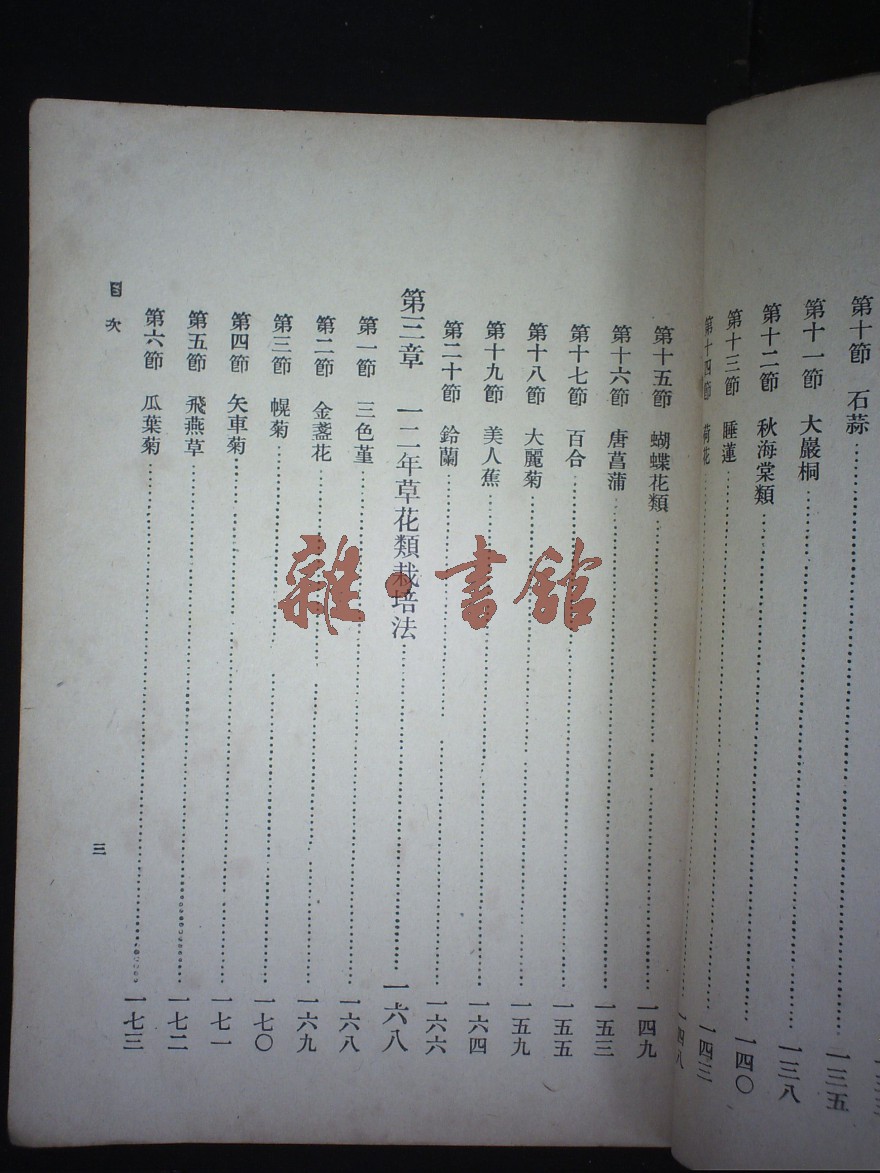 第十節　石蒜……一三五
第十一節　大巖桐……一三八
第十二節　秋海棠類……一四〇
第十三節　睡蓮……一四三
第十四節　荷花……一四八
第十五節　蝴蝶花類……一四九
第十六節　唐菖蒲……一五三
第十七節　百合……一五五
第十八節　大麗菊……一五九
第十九節　美人蕉……一六四
第二十節　鈴蘭……一六六
第三章　一二年草花類栽培法……一六八
第一節　三色堇……一六八
第二節　金盞花……一六九
第三節　幌菊……一七〇
第四節　矢車菊……一七一
第五節　飛燕草……一七二
第六節　瓜葉菊……一七三
目次
三
雜·書館